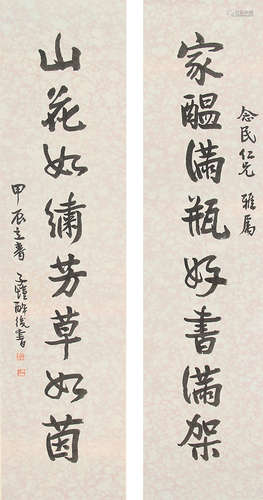 念民仁兄 雅属
家醖满瓶好書满架
山花如繡芳草如茵
甲辰立春 子愷醉後書